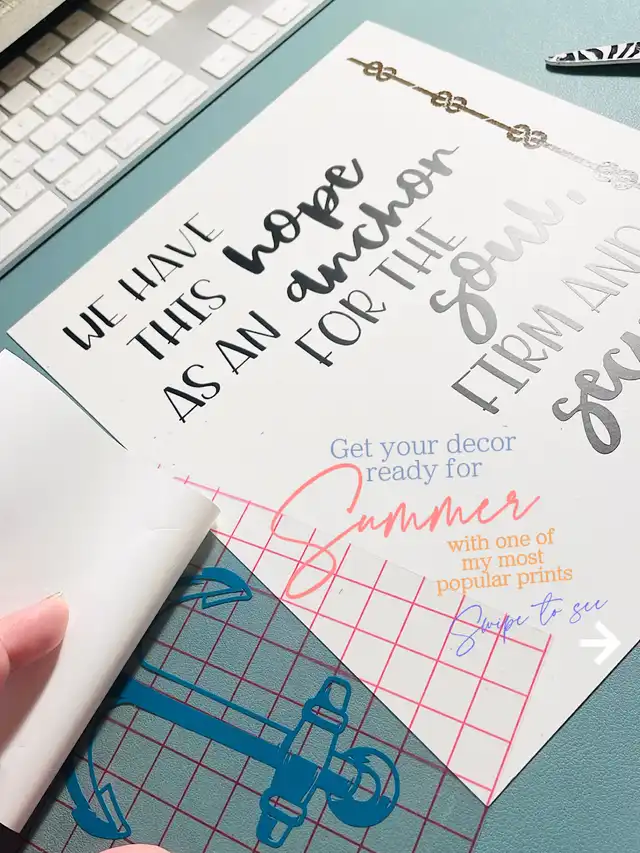 WE HAVE
THIS hope
AS AN anchor
FOR THE
soul,
FIRM AND
Get your decor
ready for
Summer
with one of
my most
popular prints
Swipe to see